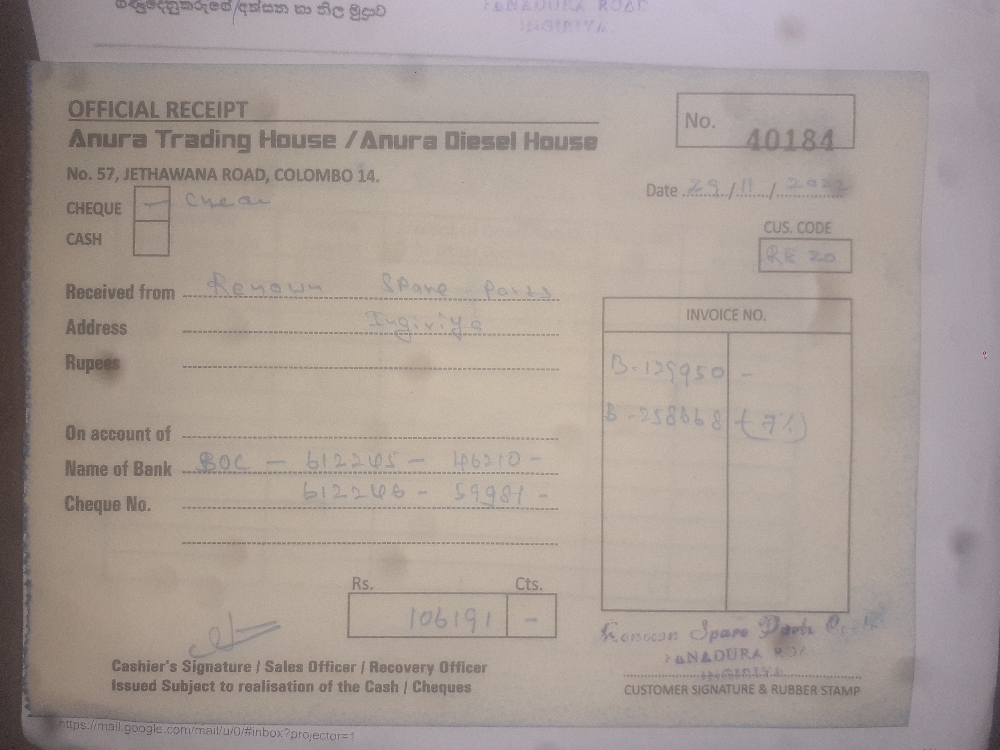 PANADURA ROAD
INGIRIYA.
OFFICIAL RECEIPT
Anura Trading House / Anura Diesel House
No. 57, JETHAWANA ROAD, COLOMBO 14.
No. 40184
Date 29 / 11 / 2022
CHEQUE
CASH
CUS. CODE
RE 20
Received from Renown Spare Parts
Address Ingiriya
Rupees
On account of
Name of Bank BOC - 612245 - 46210 -
Cheque No. 612246 - 59981 -
INVOICE NO.
B-129950 -
B-258668 (7%)
Rs. Cts.
106191 -
Cashier's Signature / Sales Officer / Recovery Officer
Issued Subject to realisation of the Cash / Cheques
Renown Spare Parts
PANADURA ROAD
INGIRIYA.
CUSTOMER SIGNATURE & RUBBER STAMP
https://mail.google.com/mail/u/0/#inbox?projector=1